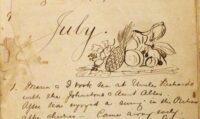 July.
1. Mamie & I took tea at Uncle Richards
with the Johnstons & Aunt Allen.
After tea enjoyed a swing in the
after cherries. Came away early.